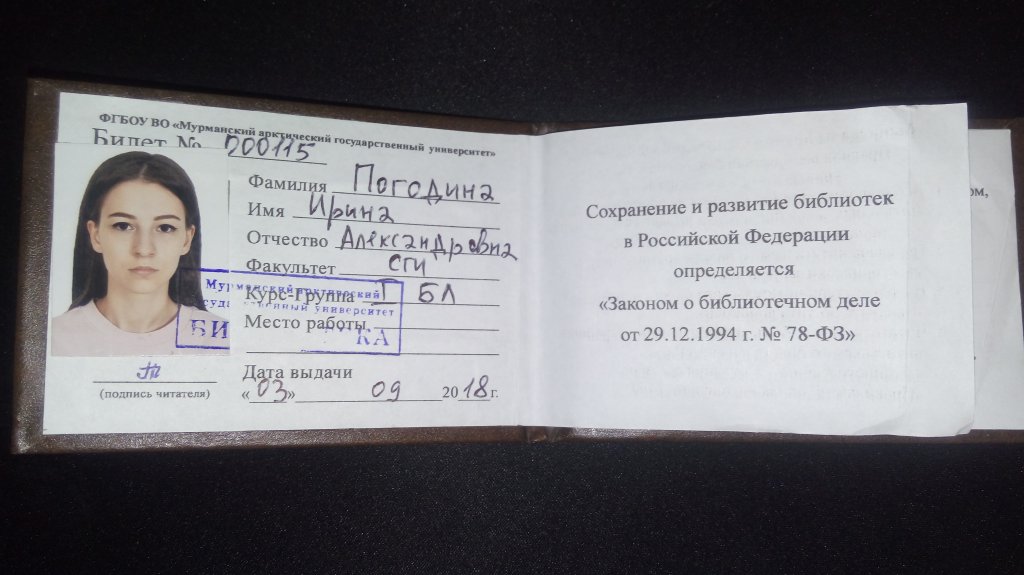 ФГБОУ ВО «Мурманский арктический государственный университет»
Билет № 000115
Фамилия Погодина
Имя Ирина
Отчество Александровна
Факультет СГИ
Курс-Группа I БЛ
Место работы
Мурманский арктический
государственный университет
БИ КА
Дата выдачи
«03» 09 2018г.
(подпись читателя)
Сохранение и развитие библиотек
в Российской Федерации
определяется
«Законом о библиотечном деле
от 29.12.1994 г. № 78-ФЗ»
ом,